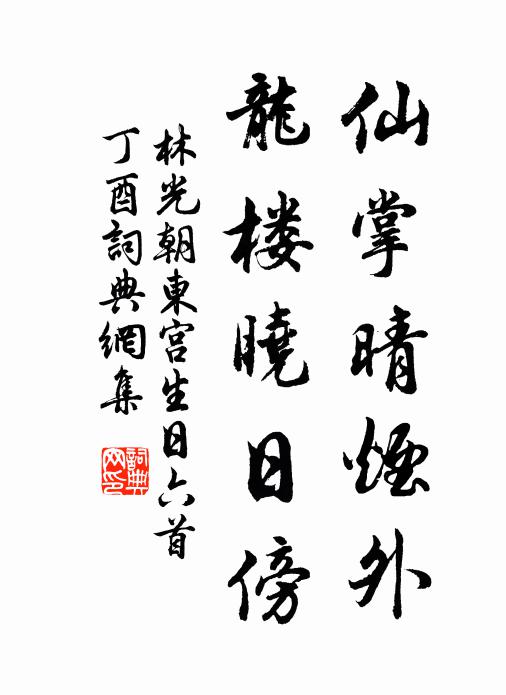 仙掌晴煙外
龍楼曉日傍
林光朝東宫生日六首
丁酉詞典網集
詞典网印